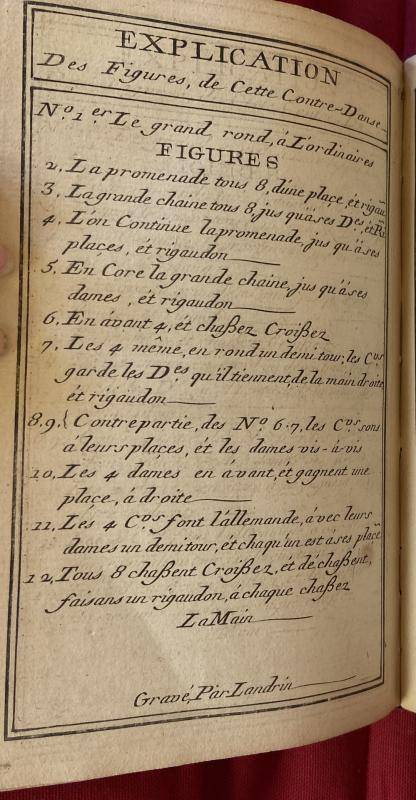 EXPLICATION
Des Figures, de Cette Contre-Danse
N.o 1.er Le grand rond, à L'ordinaires
FIGURES
2, La promenade tous 8, d'une place, ét rigau.
3, La grande chaine tous 8, jus qu'à ses D.es, ét R.
4, L'on Continue la promenade, jus qu'à ses
places, ét rigaudon
5, En Core la grande chaine, jus qu'à ses
dames, ét rigaudon
6, En ávant 4, ét chaßez Croißez
7, Les 4 même, en rond un demi tour, les C.vs
garde les D.es qu'il tiennent, de la main droite
ét rigaudon
8.9, { Contrepartie, des N.o 6.7, les C.vs sons
á leurs places, ét les dames vis-à-vis
10, Les 4 dames en ávant, ét gagnent une
place, á droite
11, Lés 4 C.vs font l'állemande, ávec leurs
dames un demi tour, ét chaqu'un est á ses place
12, Tous 8 chaßent Croißez, ét dé chaßent,
faisans un rigaudon, á chaque chaßez
La Main
Gravé, Par Landrin